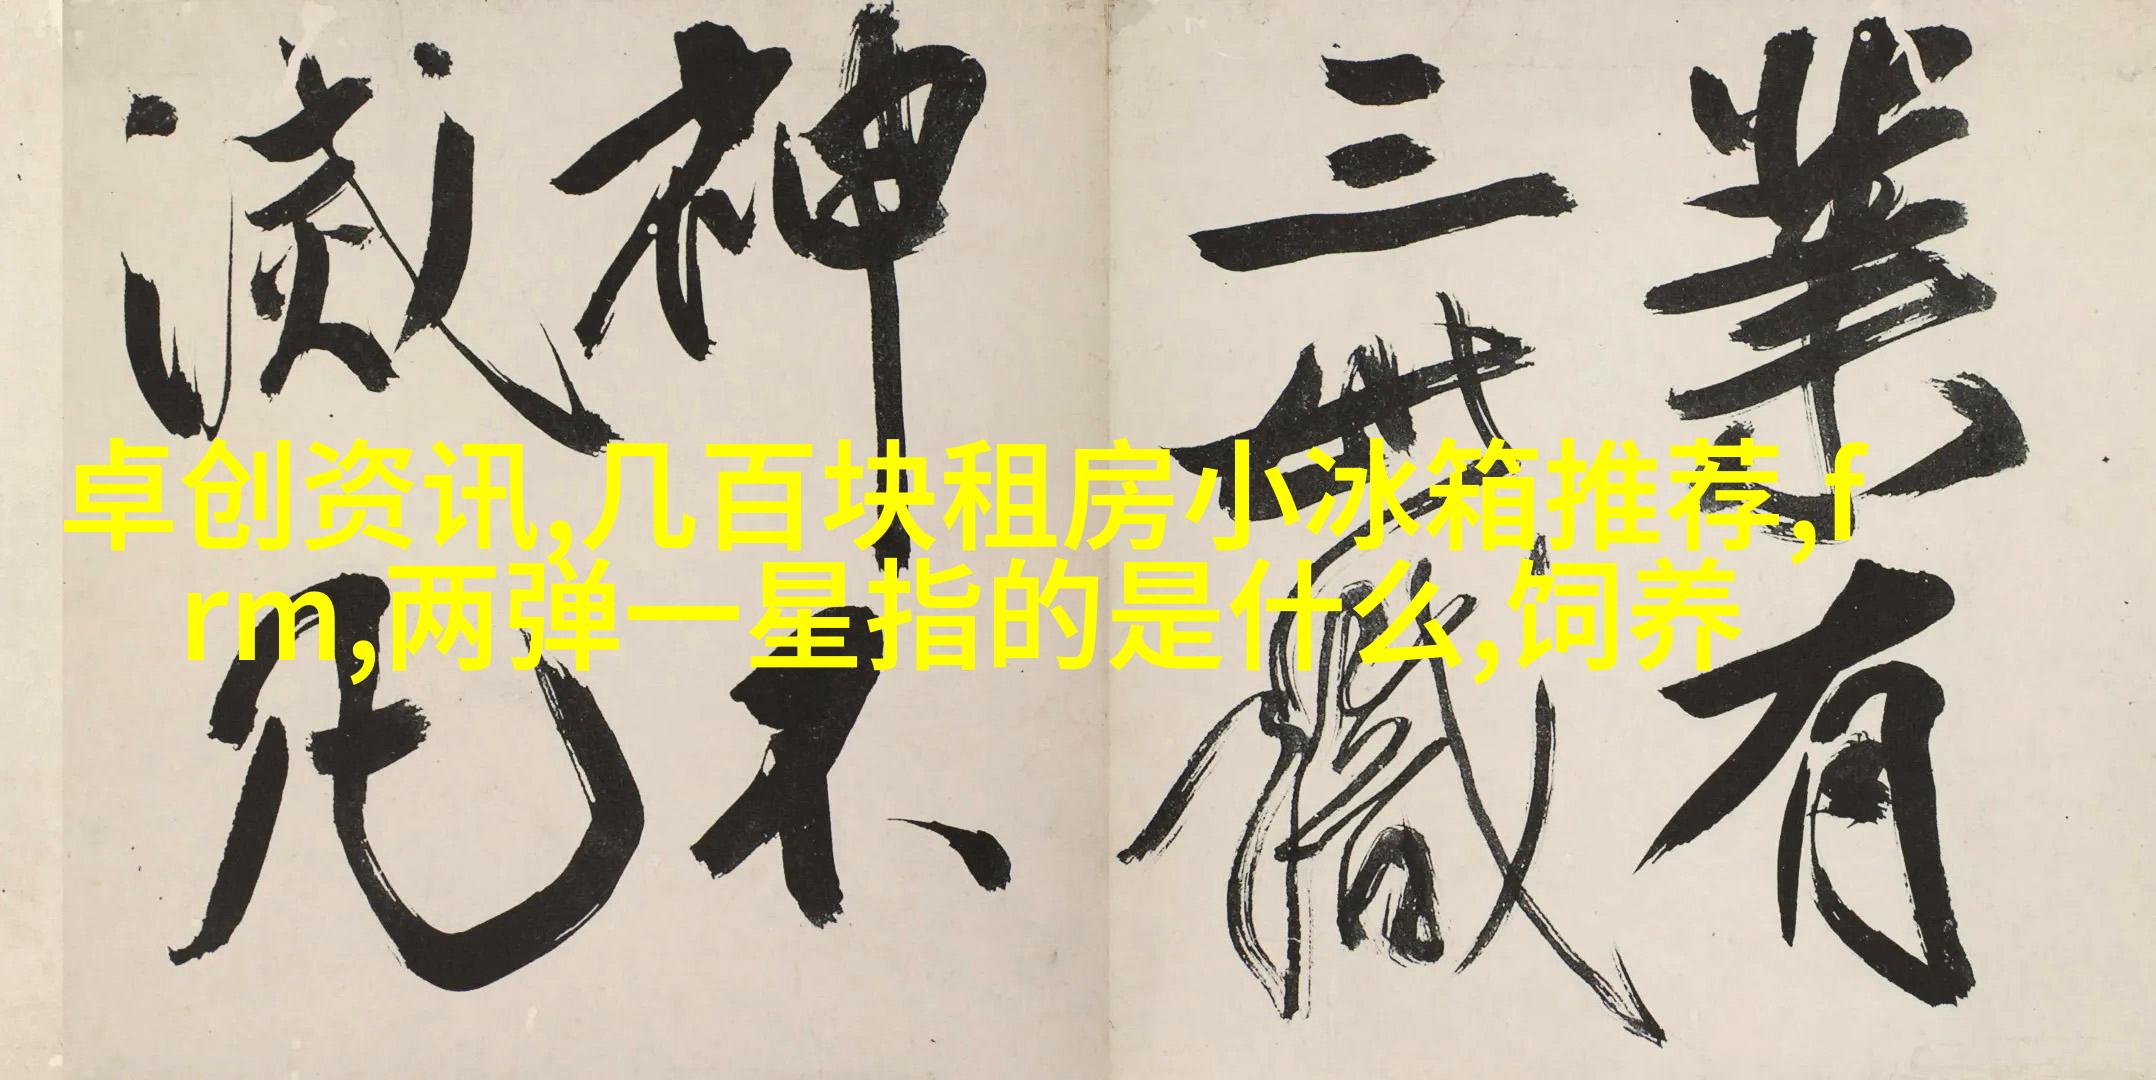 業有
三世識
神不
滅凡
卓创资讯,几百块租房小冰箱推荐,f
rm,两弹一星指的是什么,饲养